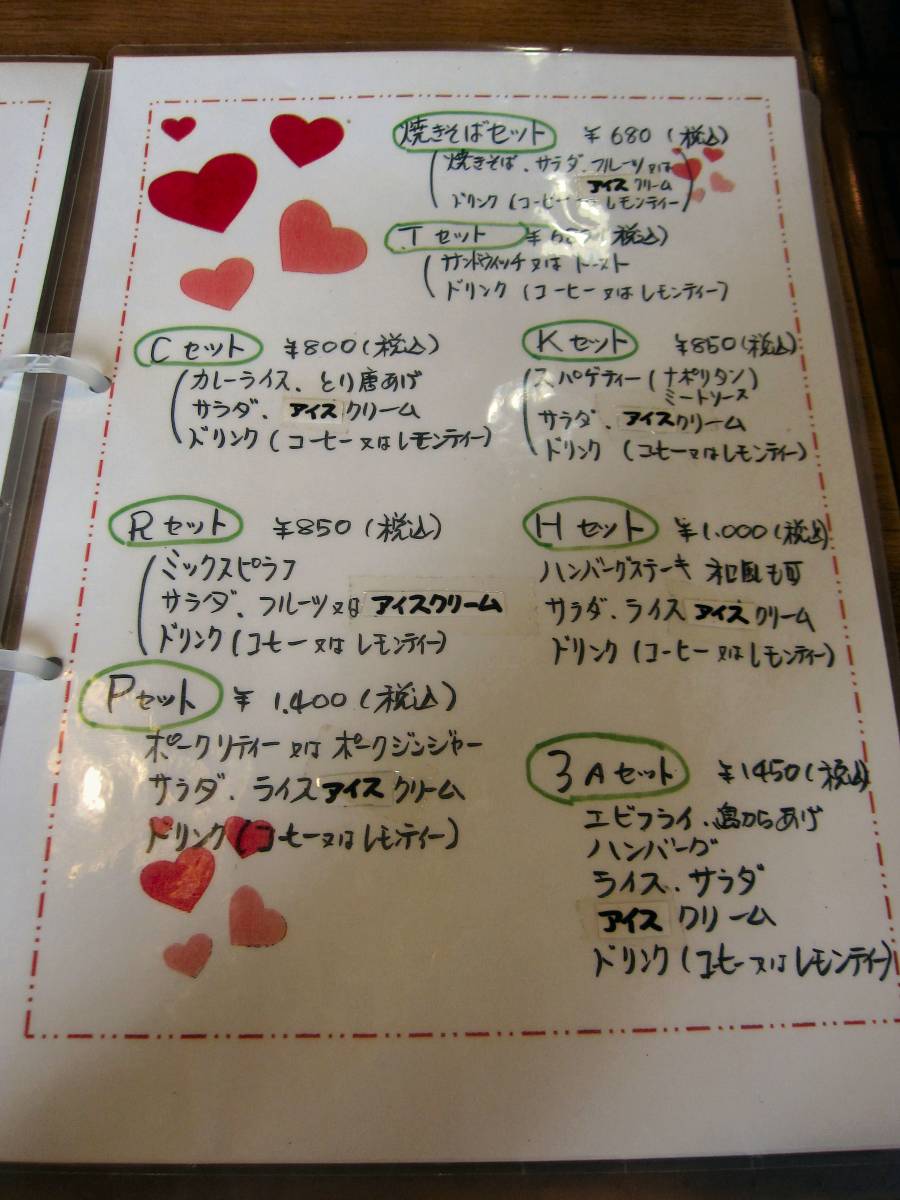 焼きそばセット ¥680(税込)
(焼きそば、サラダ、フルーツ又は
アイスクリーム
ドリンク(コーヒー レモンティー)
Tセット (税込)
サンドウィッチ又はトースト
ドリンク(コーヒー又はレモンティー)
Cセット ¥800(税込)
カレーライス、とり唐あげ
サラダ、アイスクリーム
ドリンク(コーヒー又はレモンティー)
Kセット ¥850(税込)
スパゲティー(ナポリタン)
ミートソース
サラダ、アイスクリーム
ドリンク(コーヒー又はレモンティー)
Rセット ¥850(税込)
ミックスピラフ
サラダ、フルーツ又はアイスクリーム
ドリンク(コーヒー又はレモンティー)
Hセット ¥1.000(税込)
ハンバーグステーキ 和風も可
サラダ、ライスアイスクリーム
ドリンク(コーヒー又はレモンティー)
Pセット ¥1.400(税込)
ポークリティー又はポークジンジャー
サラダ、ライスアイスクリーム
ドリンク(コーヒー又はレモンティー)
3Aセット ¥1450(税込)
エビフライ、鳥からあげ
ハンバーグ
ライス、サラダ
アイスクリーム
ドリンク(コーヒー又はレモンティー)